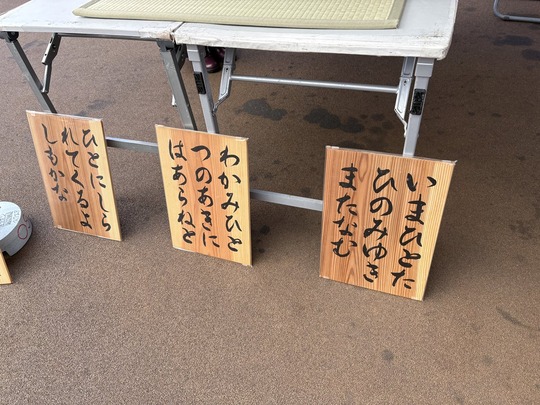 いまひとた
ひのみゆき
またなむ
わかみひと
つのあきに
はあらねと
ひとにしら
れてくるよ
しもかな